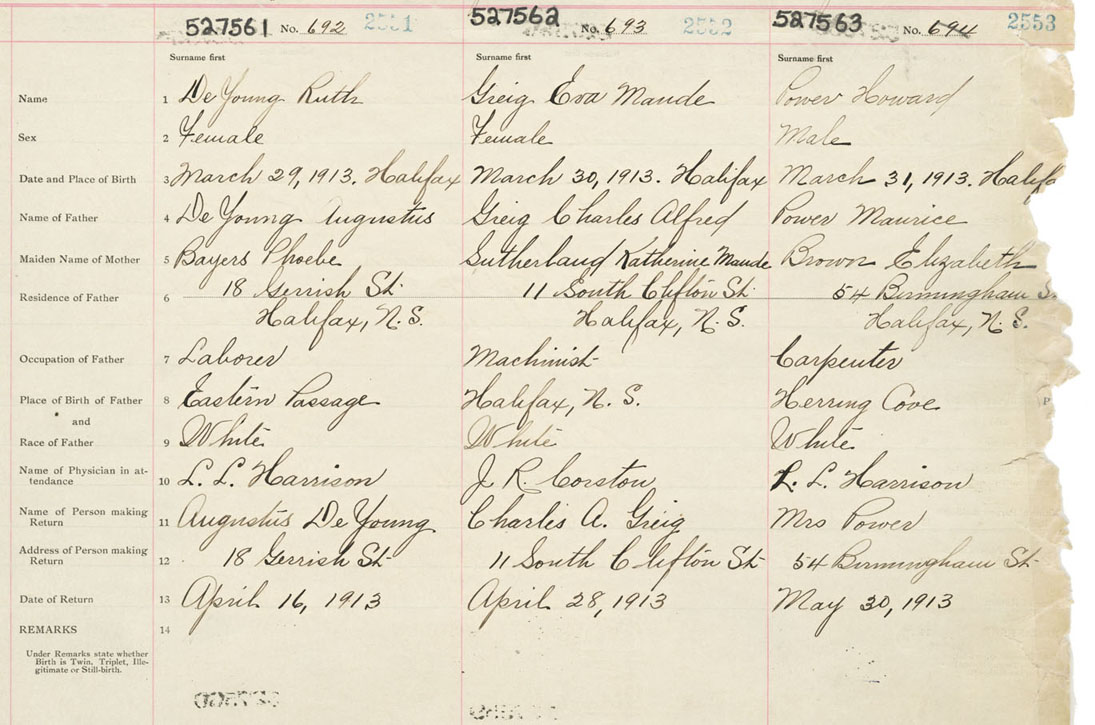 527561 No. 692 2551 527562 No. 693 2552 527563 No. 694 2553
Surname first Surname first Surname first
Name 1 De Young Ruth Greig Eva Maude Power Howard
Sex 2 Female Female Male
Date and Place of Birth 3 March 29, 1913. Halifax March 30, 1913. Halifax March 31, 1913. Halifa
Name of Father 4 De Young Augustus Greig Charles Alfred Power Maurice
Maiden Name of Mother 5 Bayers Phoebe Sutherland Katherine Maude Brown Elizabeth
Residence of Father 6 18 Gerrish St. 11 South Clifton St. 54 Birmingham S.
Halifax, N.S. Halifax, N.S. Halifax, N.S.
Occupation of Father 7 Laborer Machinist Carpenter
Place of Birth of Father 8 Eastern Passage Halifax, N.S. Herring Cove
and
Race of Father 9 White White White
Name of Physician in at-
tendance 10 L. L. Harrison J R. Corston L. L. Harrison
Name of Person making
Return 11 Augustus De Young Charles A. Greig Mrs Power
Address of Person making
Return 12 18 Gerrish St. 11 South Clifton St. 54 Birmingham St.
Date of Return 13 April 16, 1913 April 28, 1913 May 30, 1913
REMARKS 14
Under Remarks state whether
Birth is Twin, Triplet, Ille-
gitimate or Still-birth.
P